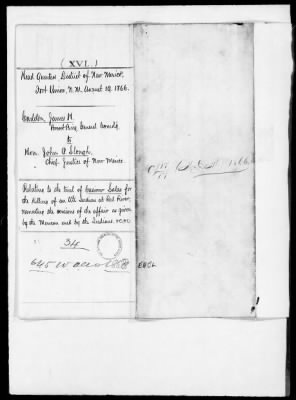 ( XVI. )
Head Quarters District of New Mexico,
Fort Union, N.M. August 12, 1866.
Carleton, James H.
Brevt Brig. General Comdg
to
Hon. John P. Slough,
Chief Justice of New Mexico
Relating to the trial of Casimero Salas for
the killing of an Ute Indian at Red River,
narrating the versions of the affair as given
by the Mexican and by the Indians
34
1866
ENCL